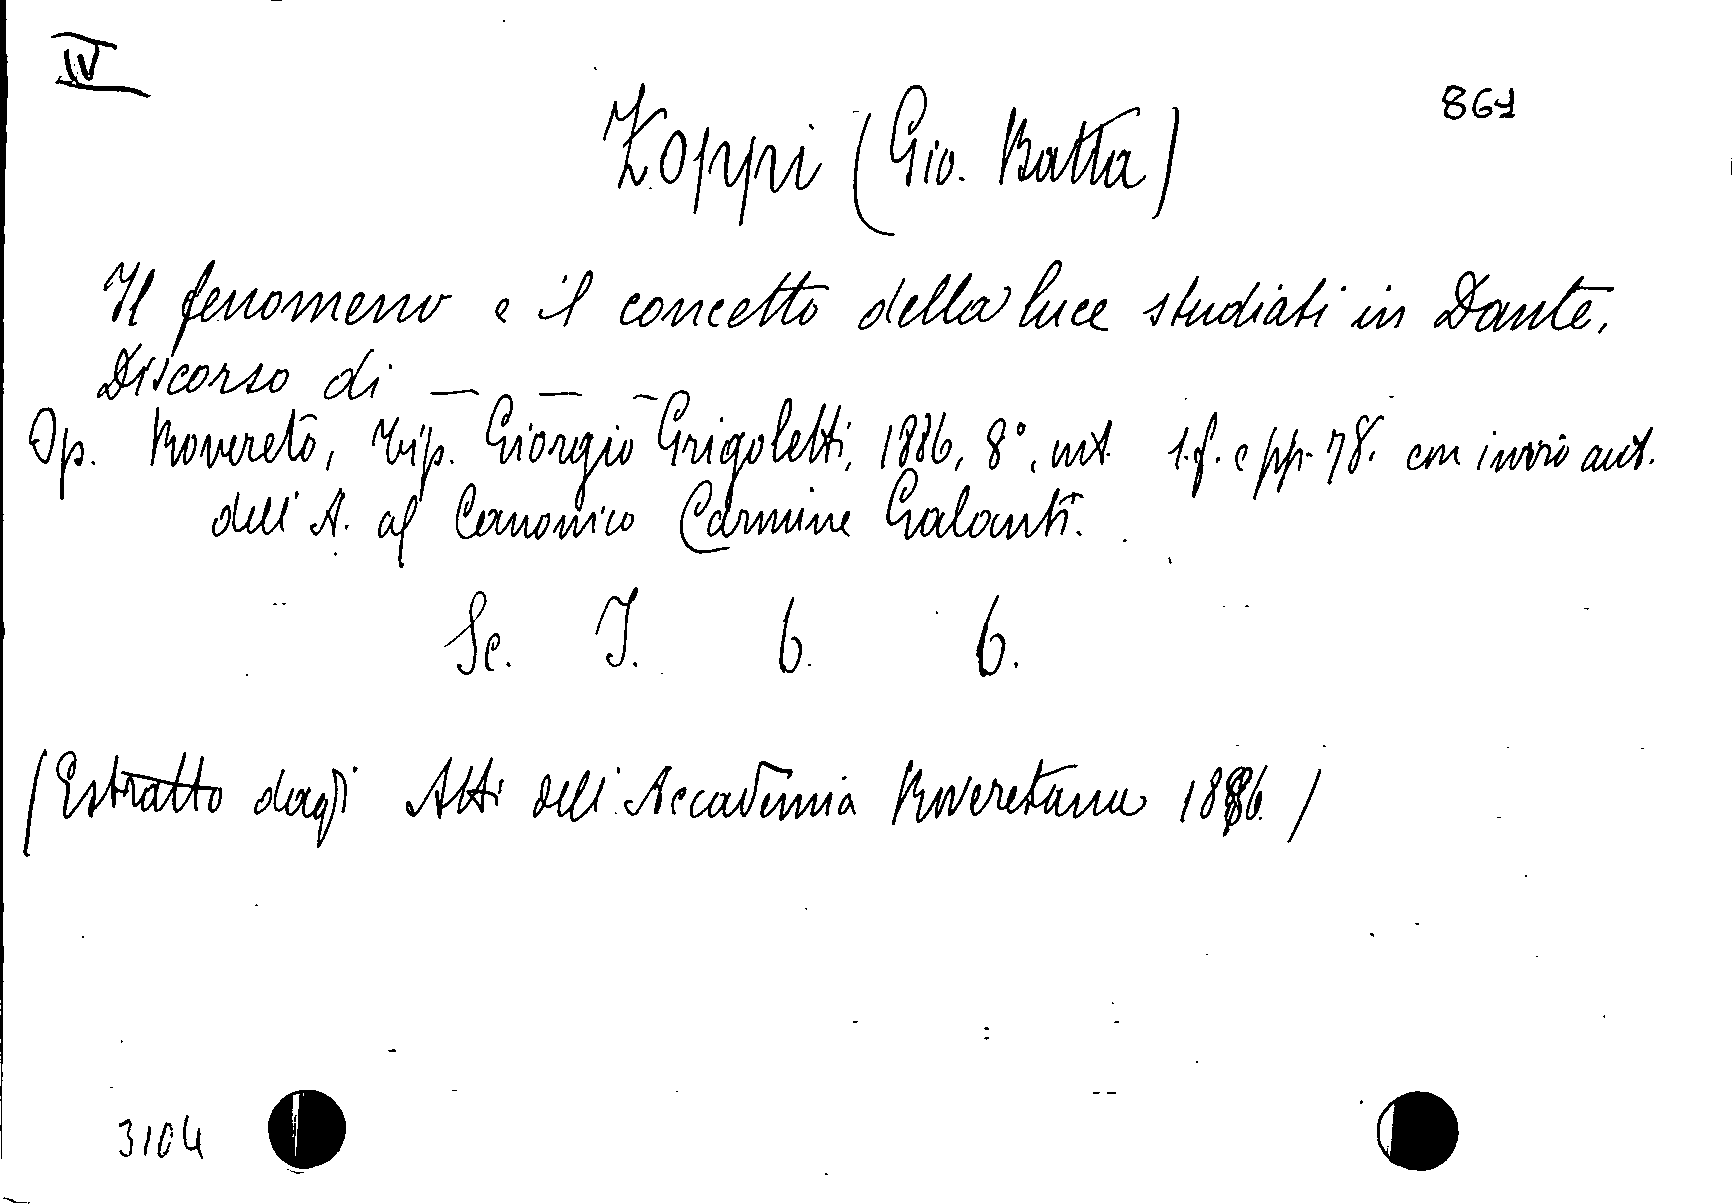 IV
861
Zoppi (Gio. Batta)
Il fenomeno e il concetto della luce studiati in Dante.
Discorso di — — —
Op. Rovereto, tip. Giorgio Grigoletti, 1886, 8°, int. 1.f. e pp. 78. con invio aut.
dell'A. al Canonico Carmine Galanti.
Sc. I. 6. 6.
(Estratto dagli Atti dell'Accademia Roveretana 1886.)
3104